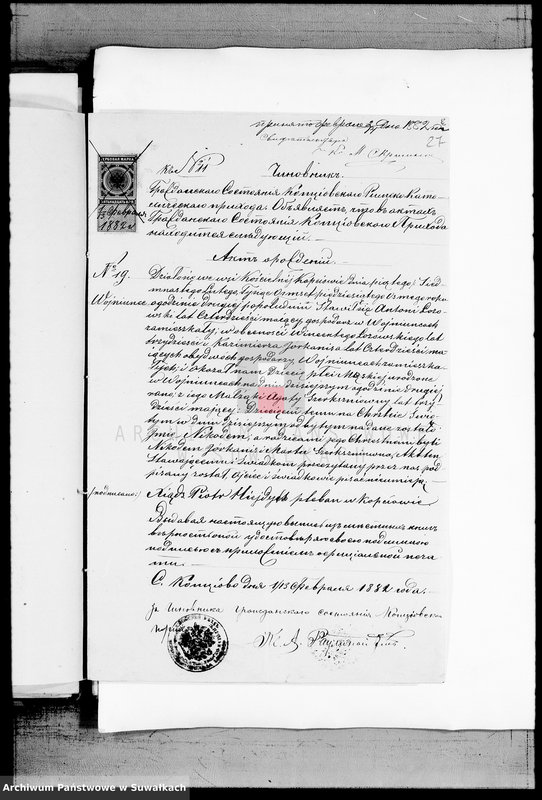 принято февраля дня 1882 года
27
ГЕРБОВАЯ МАРКА
1/13 февраля
1882 г.
Чиновникъ
Гражданскаго Состоянія Копціовскаго Римско Като-
лическаго прихода. Объявляетъ, что въ актахъ
Гражданскаго Состоянія Копціовскаго Прихода
находится слѣдующій. —
Актъ о рожденіи. —
№ 19.
Wojniunce
Działo się we wsi Kościelnej Kopciowie dnia piątego Siedm-
nastego Lutego Tysiąc Ośmset pięćdziesiątego Osmego roku
o godzinie drugiej popołudniu Stawił się Antoni
lat Czterdzieści mający gospodarz w Wojniuncach
zamieszkały, w obecności Wincentego lat
trzydzieści i Kazimierza lat Czterdzieści ma-
jących obydwóch gospodarzy w Wojniuncach zamieszka-
łych, i okazał nam Dziecię płci Męskiej urodzone
w Wojniuncach na dniu dzisiejszym o godzinie drugiej
rano, z jego Małżonki Agaty lat trzy-
dzieści mającej. Dziecięciu temu na Chrzcie Świę-
tym w dniu dzisiejszym odbytym nadane zostało
imię Nikodem, a rodzicami jego Chrzestnemi byli
Nikodem i Marta Akt ten
Stawającemu i Świadkom przeczytany przez nas pod-
pisany został, Ojciec i świadkowie pisać nieumieją.
/подписано:/ Ksiądz Piotr pleban w Kopciowie
Выдавая настоящую выпись изъ истинныхъ книгъ
вѣрность оной удостовѣряю своею подписью
съ приложеніемъ оффиціальной печа-
ти. —
С. Копціово дня 1/13 Февраля 1882 года. —
За Чиновника Гражданскаго состоянія Копціовскаго
прихода
Archiwum Państwowe w Suwałkach